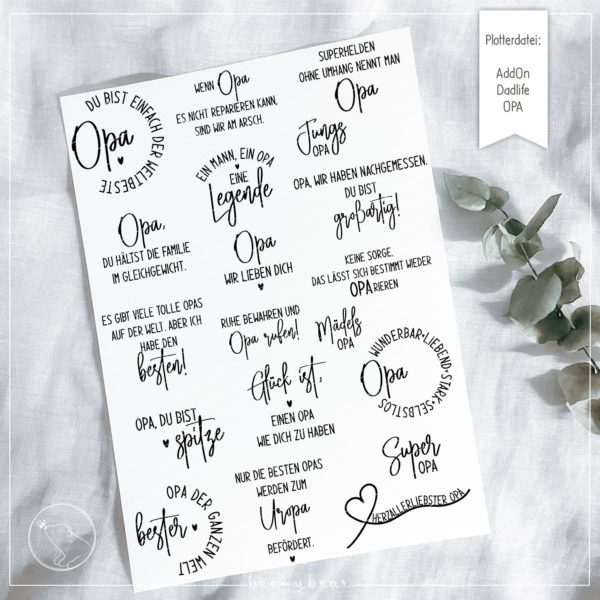 Plotterdatei:
AddOn
Dadlife
OPA
DU BIST EINFACH DER WELTBESTE
Opa
WENN Opa
ES NICHT REPARIEREN KANN,
SIND WIR AM ARSCH.
SUPERHELDEN
OHNE UMHANG NENNT MAN
Opa
Jungs
OPA
EIN MANN, EIN OPA
EINE
Legende
OPA, WIR HABEN NACHGEMESSEN.
DU BIST
großartig!
Opa,
DU HÄLTST DIE FAMILIE
IM GLEICHGEWICHT.
Opa
WIR LIEBEN DICH
KEINE SORGE,
DAS LÄSST SICH BESTIMMT WIEDER
OPARIEREN
ES GIBT VIELE TOLLE OPAS
AUF DER WELT. ABER ICH
HABE DEN
besten!
RUHE BEWAHREN UND
Opa rufen!
Mädels
OPA
WUNDERBAR•LIEBEND•STARK•SELBSTLOS
Opa
Glück ist,
EINEN OPA
WIE DICH ZU HABEN
OPA, DU BIST
spitze
Super
OPA
OPA DER GANZEN WELT
bester
NUR DIE BESTEN OPAS
WERDEN ZUM
Uropa
BEFÖRDERT.
HERZALLERLIEBSTER OPA
beemybear